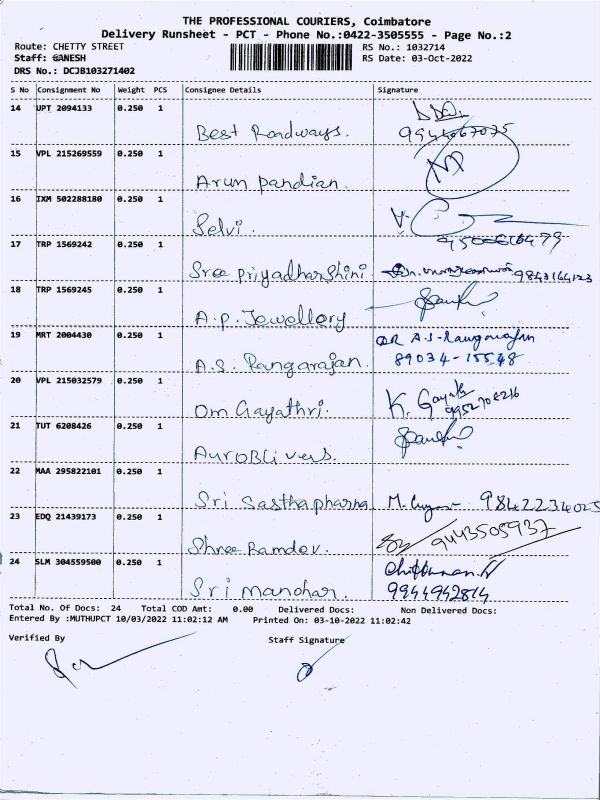 THE PROFESSIONAL COURIERS, Coimbatore
Delivery Runsheet - PCT - Phone No.:0422-3505555 - Page No.:2
Route: CHETTY STREET RS No.: 1032714
Staff: GANESH RS Date: 03-Oct-2022
DRS No.: DCJB103271402
S No Consignment No Weight PCS Consignee Details Signature
14 UPT 2094133 0.250 1
Best Roadways. 9944067075
15 VPL 215269559 0.250 1
Arun pandian.
16 IXM 502288180 0.250 1
Selvi.
17 TRP 1569242 0.250 1
Sree priyadharshini 9843164123
18 TRP 1569245 0.250 1
A.p. Jewellery
19 MRT 2004430 0.250 1 A.S. Rangarajan
A.S. Rangarajan. 89034-15548
20 VPL 215032579 0.250 1
Om Gayathri. K. Gayathri
21 TUT 6208426 0.250 1
AuroBlivers.
22 MAA 295822101 0.250 1
Sri Sasthapharma 9842234025
23 EDQ 21439173 0.250 1
Shree Ramdev. 9443505937
24 SLM 304559500 0.250 1
Sri manohar. 9944942814
Total No. Of Docs: 24 Total COD Amt: 0.00 Delivered Docs: Non Delivered Docs:
Entered By :MUTHUPCT 10/03/2022 11:02:12 AM Printed On: 03-10-2022 11:02:42
Verified By Staff Signature